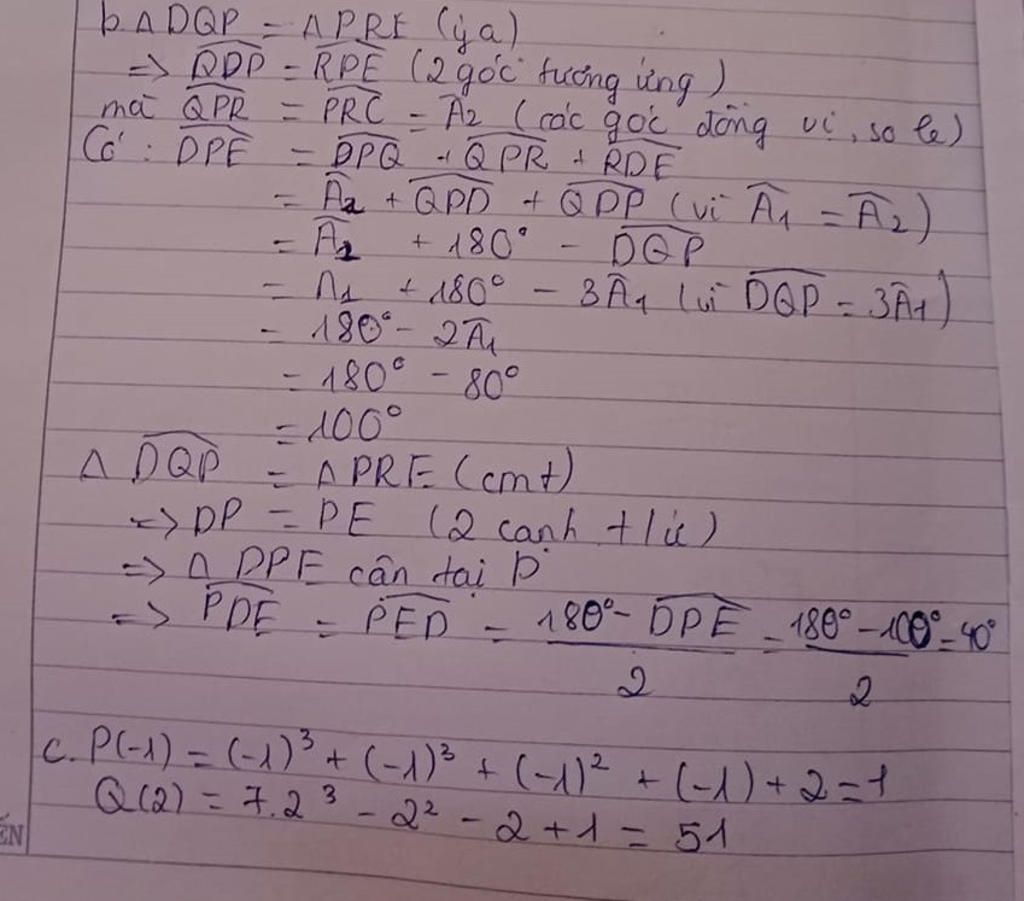 b. Δ DQP = Δ PRE (ý a)
=> \widehat{QDP} = \widehat{RPE} (2 góc tương ứng)
mà \widehat{QPR} = \widehat{PRC} = \widehat{A}2 (các góc đồng vi, so le)
Có : \widehat{DPE} = \widehat{DPQ} + \widehat{QPR} + \widehat{RDE}
= \widehat{A}2 + \widehat{QPD} + \widehat{QDP} (vì \widehat{A}1 = \widehat{A}2)
= \widehat{A}2 + 180° - \widehat{DQP}
= A1 + 180° - 3\widehat{A}1 (vì \widehat{DQP} = 3\widehat{A}1)
= 180° - 2\widehat{A}1
= 180° - 80°
= 100°
Δ \widehat{DQP} = Δ PRE (cmt)
=> DP = PE (2 canh t/ứ)
=> Δ DPE cân tại P
=> \widehat{PDE} = \widehat{PED} = \frac{180° - \widehat{DPE}}{2} = \frac{180° - 100°}{2} = 40°
c. P(-1) = (-1)³ + (-1)³ + (-1)² + (-1) + 2 = 1
Q(2) = 7.2³ - 2² - 2 + 1 = 51
ẾN